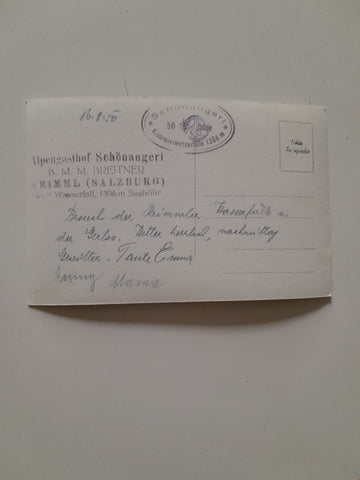 16-8-50
Schönangerl
50
Krimmlerwasserfälle 1306 m
Echte
Fotografie
Alpengasthof Schönangerl
B. M. M. BREITNER
KRIMML (SALZBURG)
Wasserfall, 1306 m Seehöhe
Besuch der Krimmler Wasserfälle u.
der Gerlos. Wetter herrlich, nachmittag
Gewitter. Tante Emma
Mama